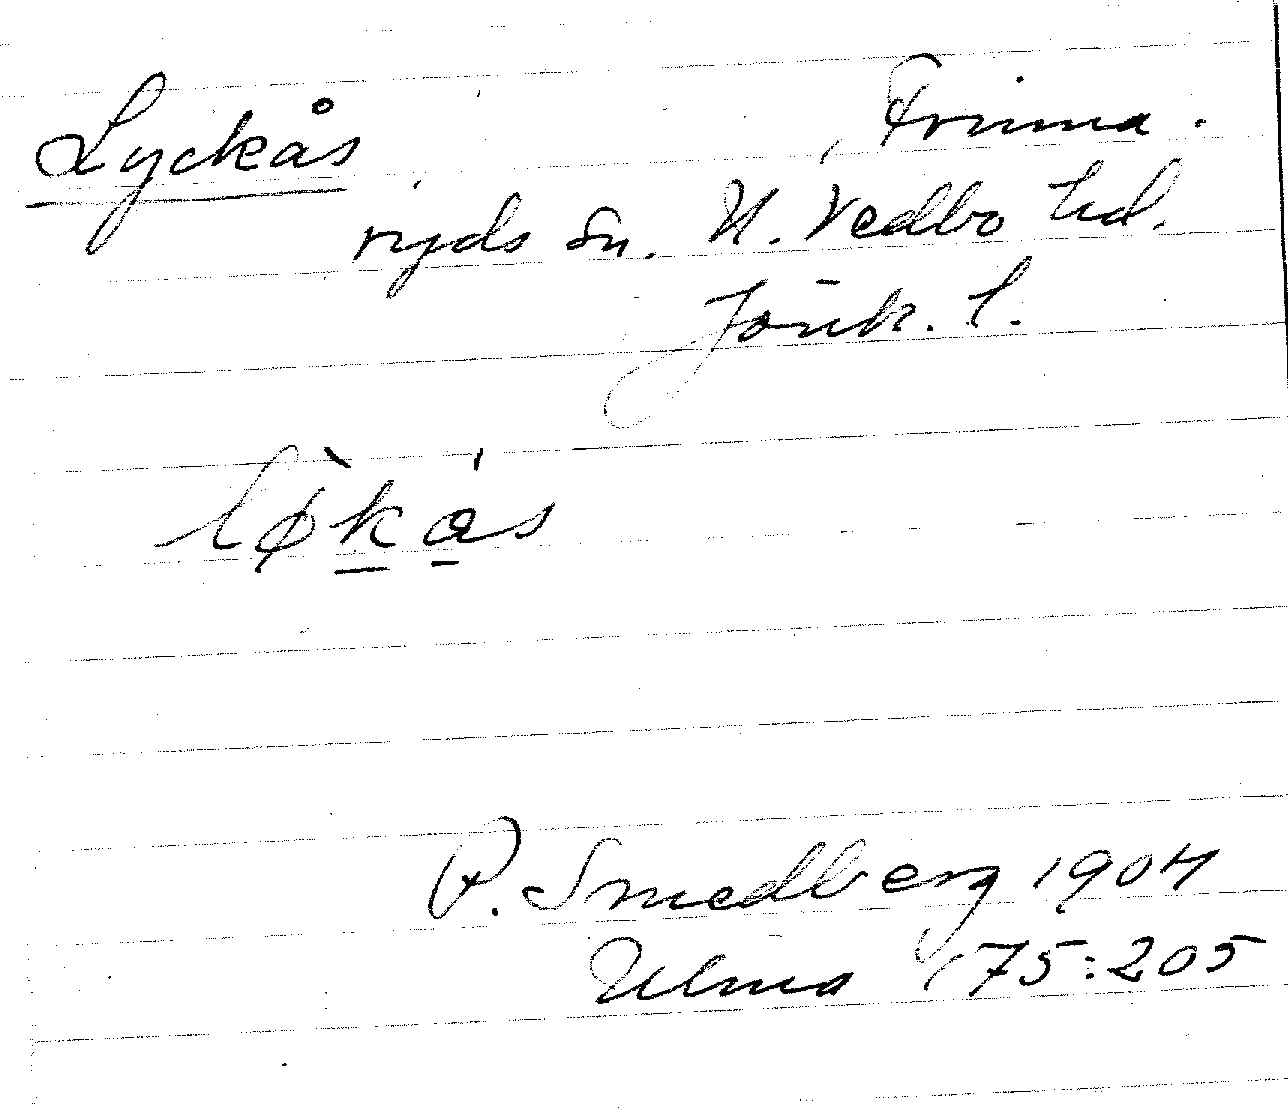 Lyckås Frinna-
ryds sn. N. Vedbo hd.
Jönk. l.
løkas
P. Smedberg 1904
Ulma 175:205